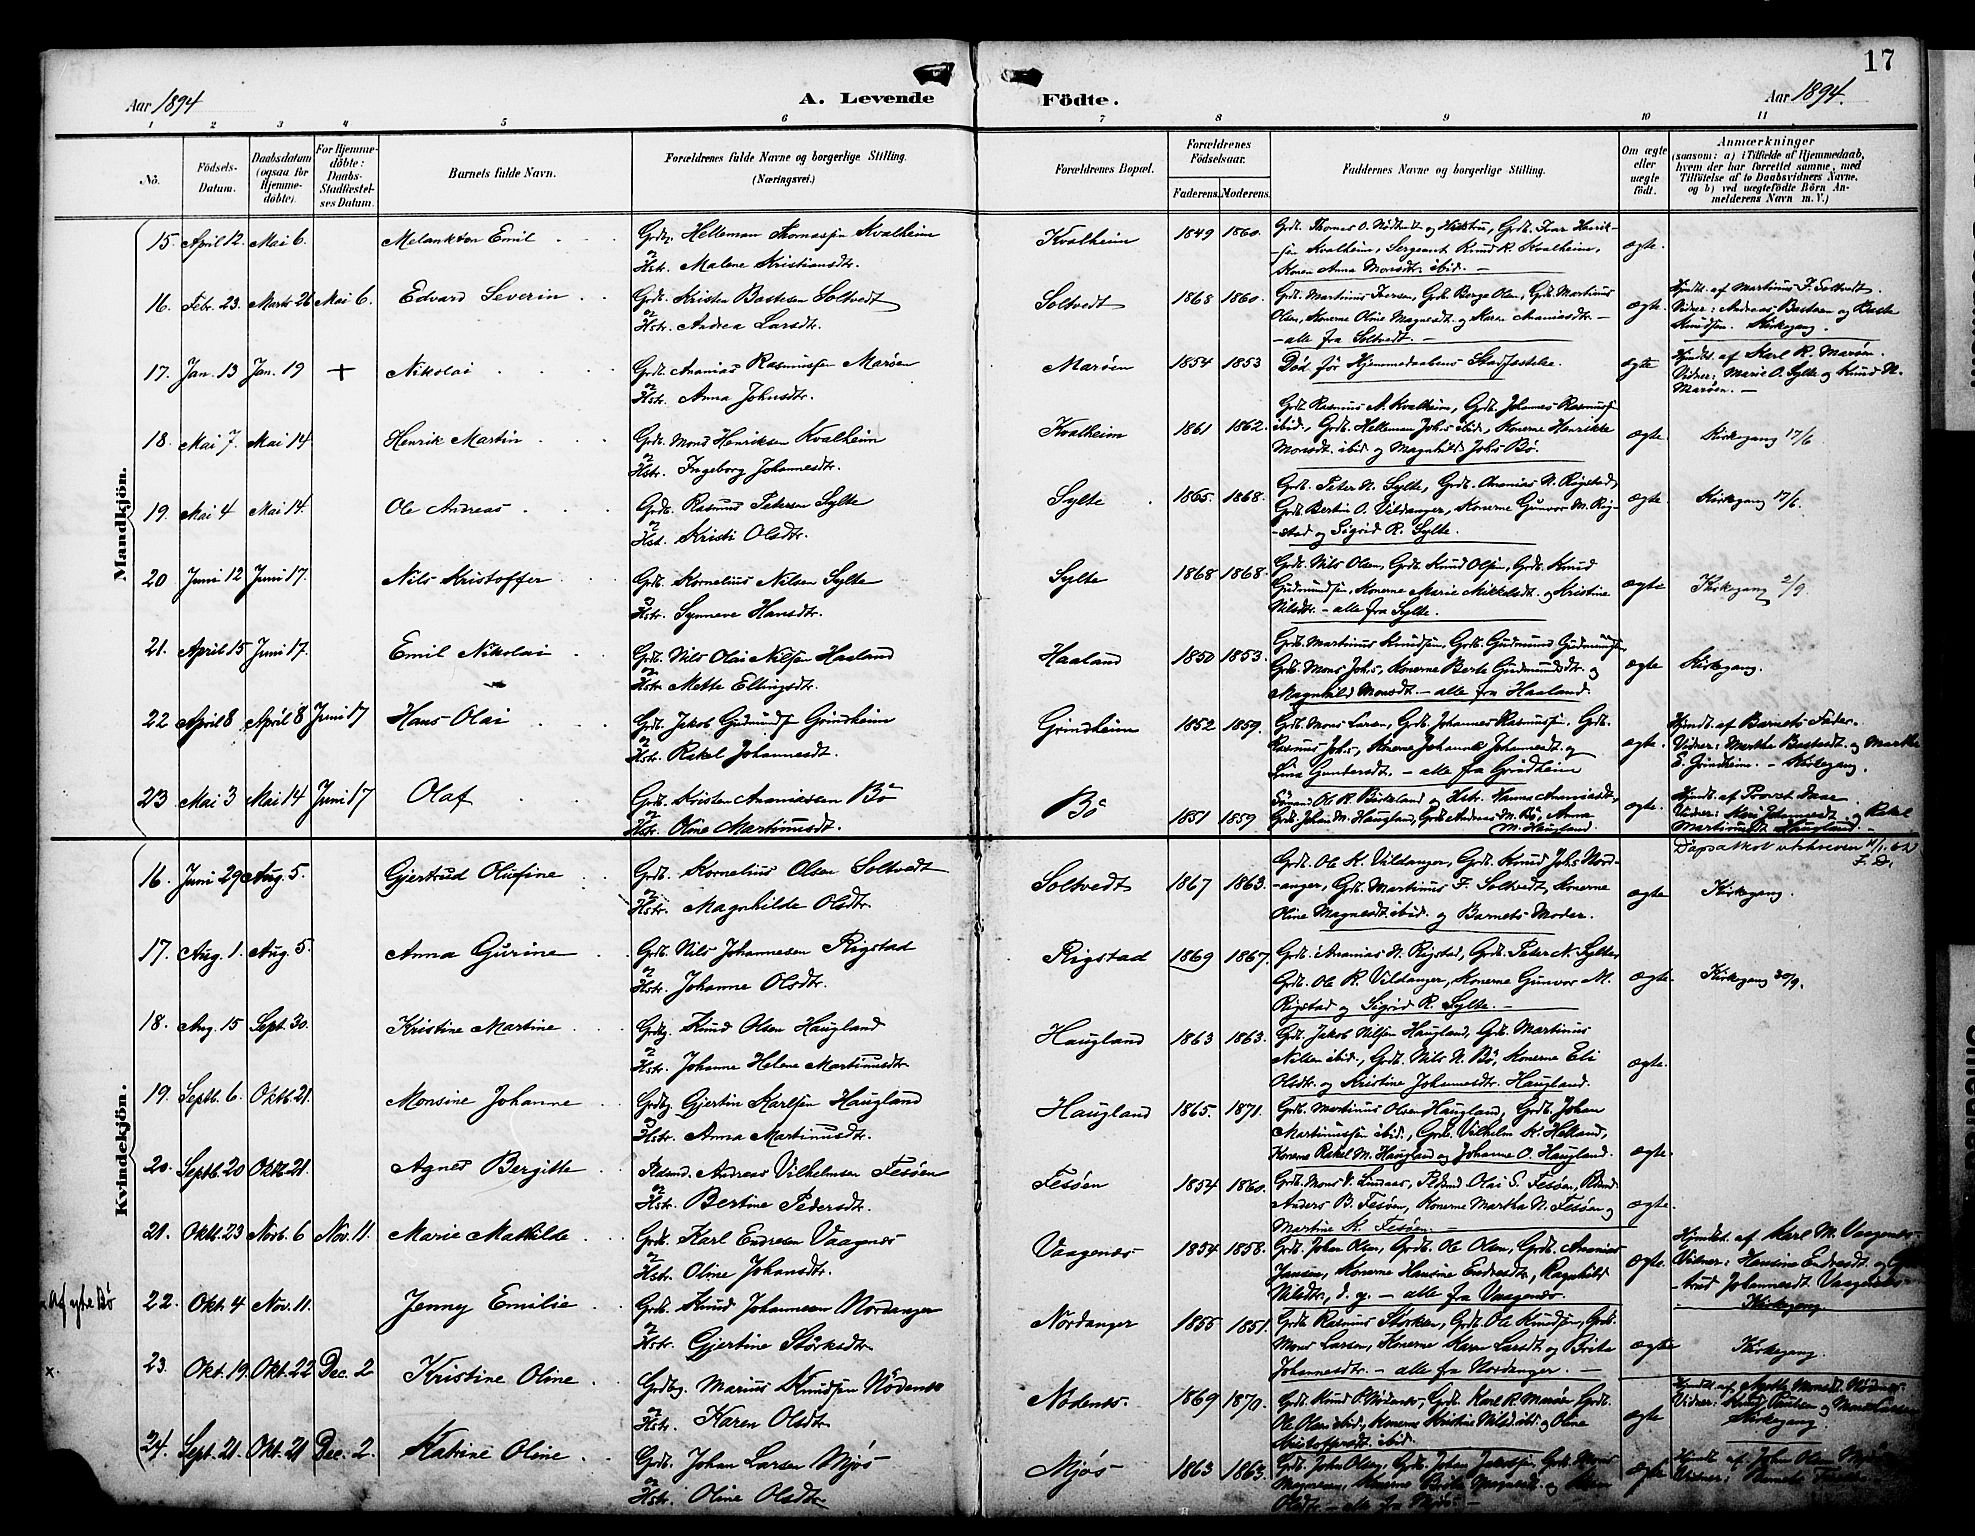 17
Aar 1894
A. Levende Födte.
Aar 1894.
1 2 3 4 5 6 7 8 9 10 11
Nô. Födsels-Datum. Daabsdatum (ogsaa for Hjemme-döbte). For Hjemme-döbte: Daabs-Stadfæstel-ses Datum. Barnets fulde Navn. Forældrenes fulde Navne og borgerlige Stilling. (Næringsvei.) Forældrenes Bopæl. Forældrenes Födselsaar. Faderens. Moderens. Faddernes Navne og borgerlige Stilling. Om ægte eller uægte födt. Anmærkninger (saasom: a) i Tilfælde af Hjemmedaab, hvem der har forrettet samme, med Tilföielse af to Daabsvidners Navne, og b) ved uegtefödte Börn An-melderens Navn m. V.)
Mandkjön.
15. April 12. Mai 6. Melankton Emil Grdbr. Helleman Thomassen Kvalheim
og Hstr. Malene Kristiansdtr. Kvalheim 1849 1860.
Sergeant Knud R. Kvalheim,
Konen Anna Monsdtr. ibid. —
ægte.
16. Febr. 23. Marts 26 Mai 6. Edvard Severin Grdb. Kristen Bastesen Soltvedt
og Hstr. Andrea Larsdtr. Soltvedt 1868 1860.
Grdb. Martinus Iversen, Grdb. Berge Olsen, Grdb. Martinus
Olsen, Konerne Oline Magnesdt. og Karen Ananiasdtr. —
— alle fra Soltvedt. —
ægte. Hjmdt. af Martinus F. Soltvedt.
Vidner: Andreas Bastesen og Baste
Knudsen. Kirkegang.
17. Jan. 13 Jan. 19 + Nikolai Grdb. Ananias Rasmussen Marøen
og Hstr. Anna Johnsdtr. Marøen 1854 1853 Død før Hjemmedaabens Stadfæstelse. ægte
Hjmdt. af Karl R. Marøen.
Vidner: Marie O. Sylte og Knud N.
Marøen. —
18. Mai 7. Mai 14 Henrik Martin Grdb. Mons Henriksen Kvalheim
og Hstr. Ingeborg Johannesdtr. Kvalheim 1861 1862.
Grdb. Rasmus A. Kvalheim, Grdb. Johannes Rasmussen
ibid., Grdb. Helleman Johs. ibid., Konerne Henrikke
Monsdt. ibid. og Magnhild Johs. Bø.
ægte. Kirkegang 17/6.
19. Mai 4 Mai 14. Ole Andreas Grdb. Rasmus Petersen Sylte
og Hst. Kristi Olsdtr. Sylte 1865. 1868.
Grdb. Peter N. Sylte, Grdb. Ananias N. Rigstad,
Grdb. Bertin O. Vildanger, Konerne Gunvor M. Rig-
-stad og Sigrid R. Sylte.
ægte. Kirkegang 17/6.
20 Juni 12 Juni 17. Nils Kristoffer Grdb. Kornelius Nilsen Sylte
og Hstr. Synneve Hansdtr. Sylte 1868 1868.
Grdb. Nils Olsen, Grdb. Knud Olsen, Grdb. Knud
Gudmundsen, Konerne Marie Mikkelsdt. og Kristine
Nilsdtr. — alle fra Sylte.
ægte Kirkegang 2/9.
21. April 15 Juni 17. Emil Nikolai Grdb. Nils Olai Nilsen Haaland
og Hstr. Mette Ellingsdtr. Haaland 1850 1853.
Grdb. Martinus Knudsen, Grdb. Gudmund Gudmundsen,
Grdb. Mons Johs., Konerne Berte Gudmundsdtr. og
Magnhild Monsdt. — alle fra Haaland.
ægte Kirkegang.
22 April 8 April 8 Juni 17 Hans Olai Grdb. Jakob Gudmunds. Grindheim
og Hstr. Rakel Johannesdt. Grindheim 1852 1859.
Grdb. Mons Larsen, Grdb. Johannes Rasmussen, Grdb.
Rasmus Johs., Konerne Johanne Johannesdt. og
Sina Gundersdt. — alle fra Grindheim
ægte. Hjmdt. af Barnets Fader.
Vidner: Martha Bastesdt. og Martha
E. Grindheim. — Kirkegang.
23 Mai 3 Mai 14 Juni 17 Olaf Grdb. Kristen Ananiassen Bø
og Hstr. Oline Martinusdt. Bø 1851 1859.
Ole R. Birkeland og Hstr. Hanna Ananiasdt.,
Grdb. John M. Haugland, Grdb. Andreas M. Bø, Anna
M. Haugland.
ægte Hjmdt. af Provst Daae.
Johannesdt. og Rakel
Martinusdt. Haugland. —
Kvindekjön.
Daapsattest utskreven
16. Juni 29 Aug. 5. Gjertrud Olufine Grdb. Kornelius Olsen Soltvedt
og Hstr. Magnhilde Olsdtr. Soltvedt 1867 1863.
Grdb. Ole K. Vildanger, Grdb. Knud Johs. Nord-
-anger, Grdb. Martinus F. Soltvedt, Konerne
Oline Magnesdt. ibid. og Barnets Moder.
ægte Kirkegang.
17. Aug. 1. Aug. 5. Anna Gurine Grdb. Nils Johannesen Rigstad
og Hstr. Johanne Olsdtr. Rigstad 1869 1867.
Grdb. Ananias N. Rigstad, Grdb. Peter N. Sylte,
Grdb. Ole R. Vildanger, Konerne Gunvor M.
Rigstad og Sigrid R. Sylte. —
ægte. Kirkegang 30/9.
18. Aug. 15 Sept. 30. Kristine Martine Grdbg. Knud Olsen Haugland
og Hstr. Johanne Helene Martinusdtr. Haugland 1863 1863.
Grdb. Jakob Nilsen Haugland, Grdb. Martinus
Nilsen ibid., Grdb. Nils N. Bø, Konerne Eli
Olsdtr. og Kristine Johannesdtr. Haugland.
ægte.
19. Septb. 6. Oktb. 21. Monsine Johanne Grdbg. Gjertin Karlsen Haugland
og Hstr. Anna Martinusdtr. Haugland 1865. 1871.
Grdb. Martinus Olsen Haugland, Grdb. Johan
Martinussen ibid., Grdb. Vilhelm K. Helland,
Konerne Rakel M. Haugland og Johanne O. Haugland.
ægte.
20. Septb. 20 Oktb. 21. Agnes Bergitte Andreas Vilhelmsen Fesøen
og Hstr. Bertine Pedersdt. Fesøen 1854 1860.
Grdb. Mons V. Lindaas, Olai S. Fesøen,
Anders B. Fesøen, Konerne Martha N. Fesøen og
Martine K. Fesøen. —
ægte.
21. Oktb. 23 Novb. 6 Nov. 11. Marie Mathilde Grdb. Karl Endresen Vaagenæs
og Hstr. Oline Johansdtr. Vaagenæs 1854 1858.
Grdb. Johan Olsen, Grdb. Ole Olsen, Grdb. Ananias
Jansen, Konerne Hansine Endresdtr., Ragnhild
Nilsdtr., d. y. — alle fra Vaagenæs.
ægte. Hjmdt. af Karl M. Vaagenæs.
Vidner: Hansine Endresdt. og Gjer-
-trud Johannesdt. Vaagenæs. —
Kirkegang.
Bø
22. Okt. 4 Nov. 11. Jenny Emilie Grdb. Knud Johannesen Nordanger
og Hstr. Gjertine Størksdtr. Nordanger 1855 1851.
Grdb. Rasmus Størksen, Grdb. Ole Knudsen, Grdb.
Mons Larsen, Konerne Karen Larsdt. og Brite
Johannesdtr. — alle fra Nordanger. —
ægte Kirkegang.
x
23. Okt. 19. Okt. 22 Dec. 2 Kristine Oline Grdbg. Marius Knudsen Nødenæs
og Hstr. Karen Olsdt. Nødenæs. 1869 1870.
Grdb. Knud P. Nødenæs, Grdb. Karl R. Marøen, Grdb.
Ole Olsen ibid., Konerne Kristine Nilsd. ibid. og Oline
Kristoffersdt. ibid.
ægte Hjmdt. af
Vidner: Knud
Kirkegang.
24. Sept. 21. Okt. 21 Dec. 2. Katrine Oline Grdb. Johan Larsen Mjøs
og Hstr. Oline Olsdtr. Mjøs 1863 1863.
Grdb. John
Olsdtr. — alle fra Mjøs —
ægte Hjmdt. af John Olsen Mjøs
Vidner: